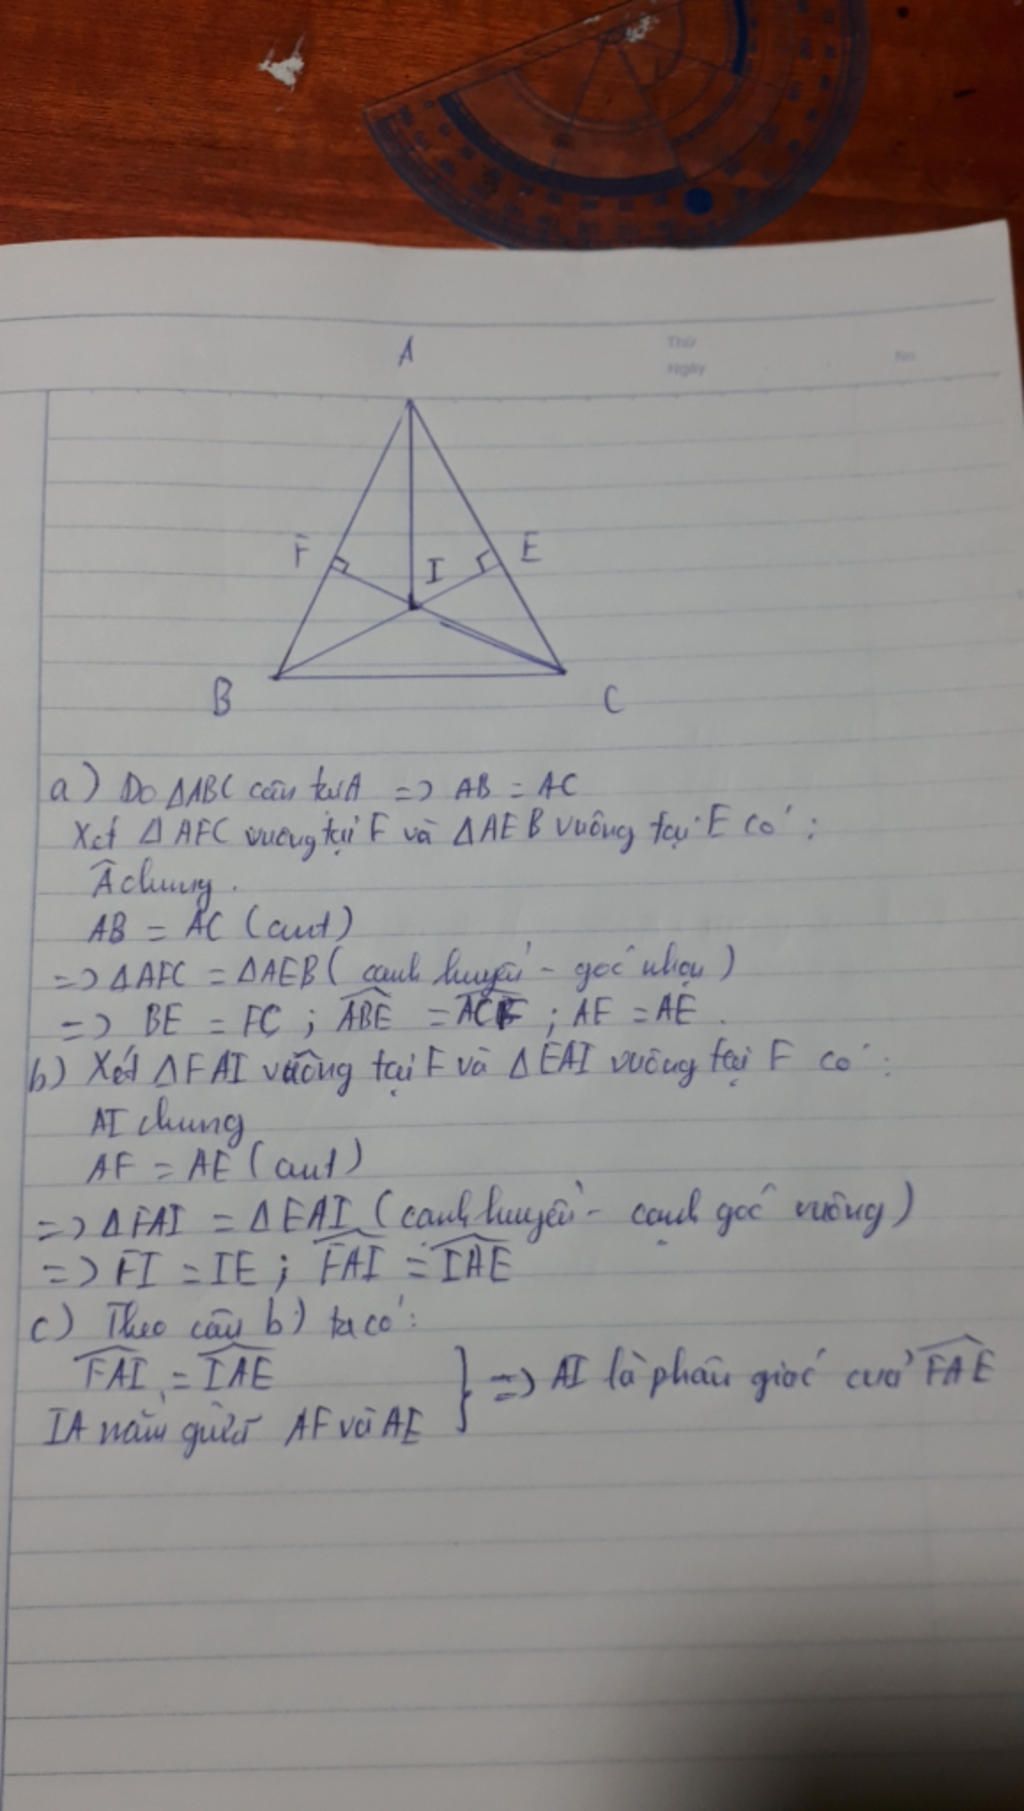 Thứ
Ngày
No.
A
F
I
E
B
C
a) Do ΔABC cân tại A => AB = AC
Xét ΔAFC vuông tại F và ΔAEB vuông tại E có:
Â chung.
AB = AC (cmt)
=> ΔAFC = ΔAEB (cạnh huyền - góc nhọn)
=> BE = FC ; \widehat{ABE} = \widehat{ACF} ; AF = AE.
b) Xét ΔFAI vuông tại F và ΔEAI vuông tại F có:
AI chung
AF = AE (cmt)
=> ΔFAI = ΔEAI (cạnh huyền - cạnh góc vuông)
=> FI = IE ; \widehat{FAI} = \widehat{IAE}
c) Theo câu b) ta có:
\widehat{FAI} = \widehat{IAE} } => AI là phân giác của \widehat{FAE}
IA nằm giữa AF và AE